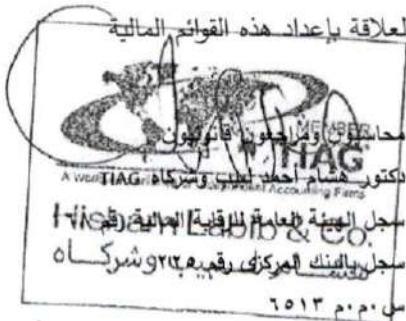 لعلاقة بإعداد هذه القوائم المالية
محاسبون ومراجعون قانونيون
MEMBER
TIAG
دكتور هشام احمد لبيب وشركاه TIAG
سجل الهيئة العامة للرقابة المالية رقم
Hisham Labib & Co.
سجل بالبنك المركزى رقم
لبيب وشركاه
س.م.م ٦٥١٣